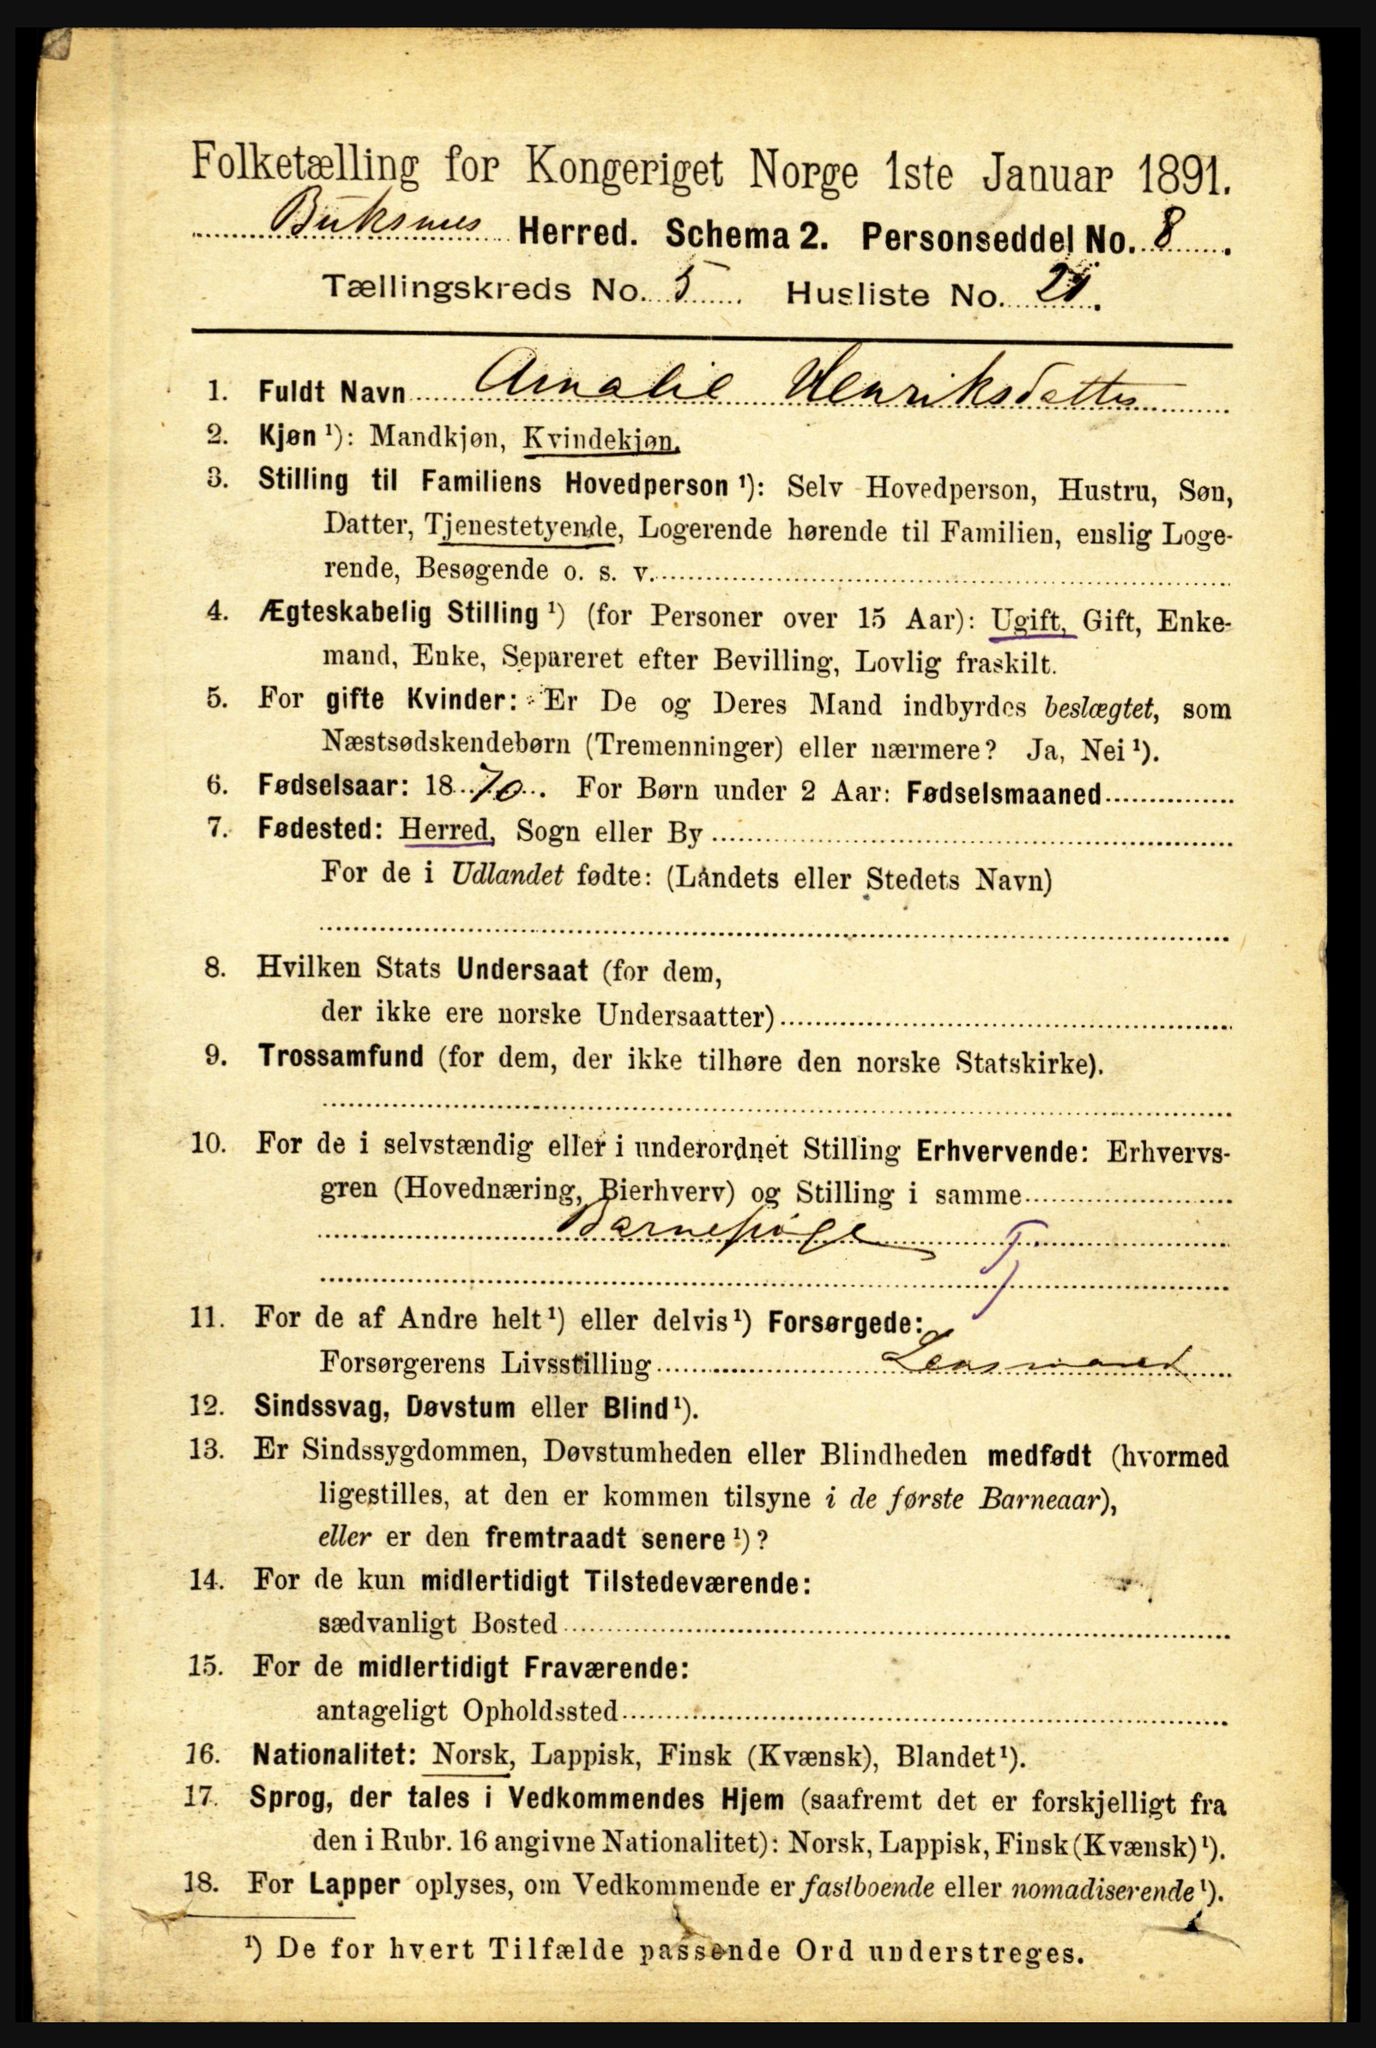 Folketælling for Kongeriget Norge 1ste Januar 1891.
Buksnes Herred. Schema 2. Personseddel No. 8.
Tællingskreds No. 5. Husliste No. 21.
1. Fuldt Navn Amalie Henriksdatter
2. Kjøn ¹): Mandkjøn, Kvindekjøn.
3. Stilling til Familiens Hovedperson ¹): Selv Hovedperson, Hustru, Søn,
Datter, Tjenestetyende, Logerende hørende til Familien, enslig Loge-
rende, Besøgende o. s. v.
4. Ægteskabelig Stilling ¹) (for Personer over 15 Aar): Ugift, Gift, Enke-
mand, Enke, Separeret efter Bevilling, Lovlig fraskilt.
5. For gifte Kvinder: Er De og Deres Mand indbyrdes beslægtet, som
Næstsødskendebørn (Tremenninger) eller nærmere? Ja, Nei ¹).
6. Fødselsaar: 1870. For Børn under 2 Aar: Fødselsmaaned
7. Fødested: Herred, Sogn eller By
For de i Udlandet fødte: (Landets eller Stedets Navn)
8. Hvilken Stats Undersaat (for dem,
der ikke ere norske Undersaatter)
9. Trossamfund (for dem, der ikke tilhøre den norske Statskirke).
10. For de i selvstændig eller i underordnet Stilling Erhvervende: Erhvervs-
gren (Hovednæring, Bierhverv) og Stilling i samme
Barnepige Tj
11. For de af Andre helt ¹) eller delvis ¹) Forsørgede:
Forsørgerens Livsstilling Lensmand
12. Sindssvag, Døvstum eller Blind ¹).
13. Er Sindssygdommen, Døvstumheden eller Blindheden medfødt (hvormed
ligestilles, at den er kommen tilsyne i de første Barneaar),
eller er den fremtraadt senere ¹)?
14. For de kun midlertidigt Tilstedeværende:
sædvanligt Bosted
15. For de midlertidigt Fraværende:
antageligt Opholdssted
16. Nationalitet: Norsk, Lappisk, Finsk (Kvænsk), Blandet ¹).
17. Sprog, der tales i Vedkommendes Hjem (saafremt det er forskjelligt fra
den i Rubr. 16 angivne Nationalitet): Norsk, Lappisk, Finsk (Kvænsk) ¹).
18. For Lapper oplyses, om Vedkommende er fastboende eller nomadiserende ¹).
¹) De for hvert Tilfælde passende Ord understreges.